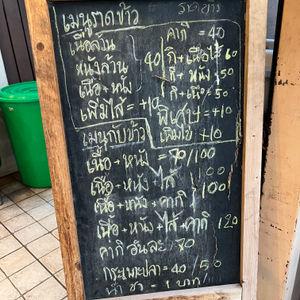 เมนูราดข้าว
ราคา
เนื้อล้วน
หนังล้วน
เนื้อ+หนัง
40
เพิ่มไส้=+10
คากิ=40
คากิ+เนื้อไม้ 60
กิ+หนัง 50
กิ+เนื้อ 50
พิเศษ+10
เพิ่มไข่+10
เมนูกับข้าว
เนื้อ+หนัง=80/100
เนื้อ+หนัง+ไส้ 100
เนื้อ+หนัง+คากิ 100
เนื้อ+หนัง+ไส้+คากิ 120
คากิอันละ 80
กระเพาะปลา=40/50
น้ำชา=1 บาท